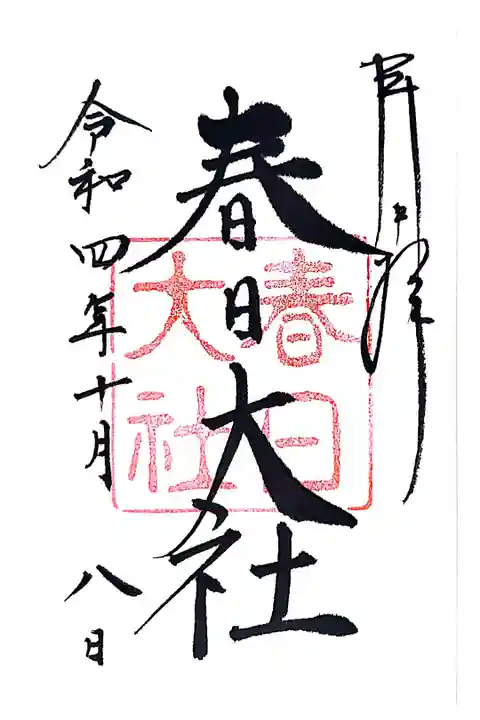 奉拝
春日大社
春日
大社
令和四年十月八日